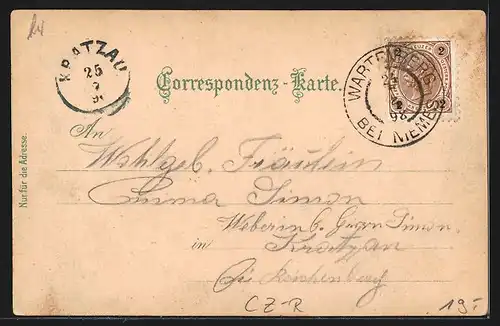 KRATZAU
25
7
9
Correspondenz-Karte.
2 2
WARTENBERG
98
BEI NIEME
An
Wohlgeb. Fräulein
Emma Simon
Weberin b. Simon
in Kratzau
bei Reichenberg
Nur für die Adresse.
CZ-R
19.-